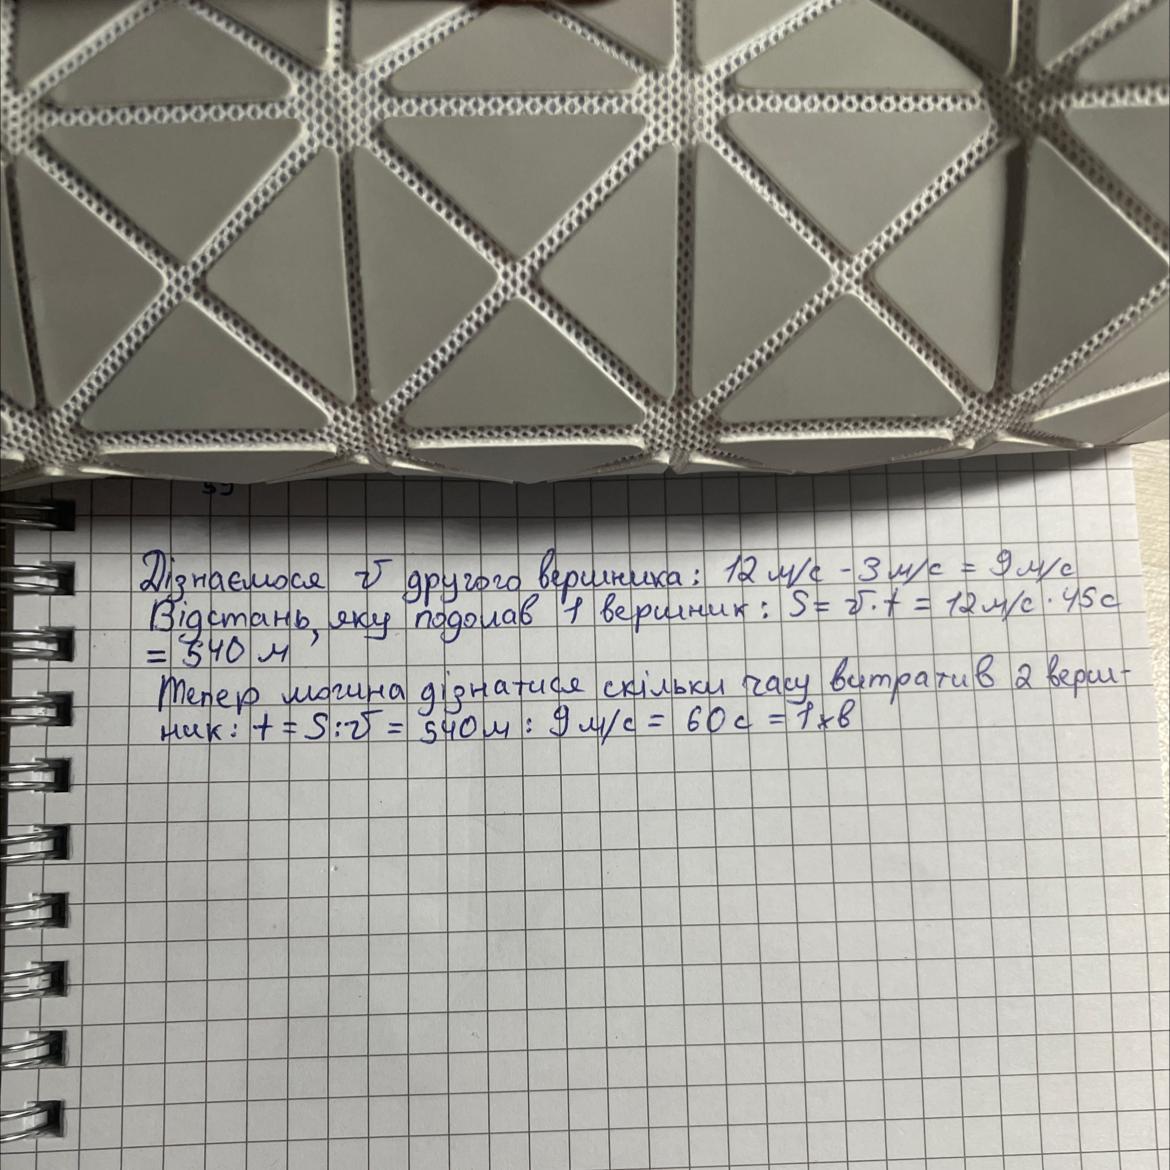 Дізнаємося v другого вершника: 12 м/с - 3 м/с = 9 м/с
Відстань, яку подолав 1 вершник: S = v · t = 12 м/с · 45 с
= 540 м
Тепер можна дізнатися скільки часу витратив 2 верш-
ник: t = S : v = 540 м : 9 м/с = 60 с = 1 хв